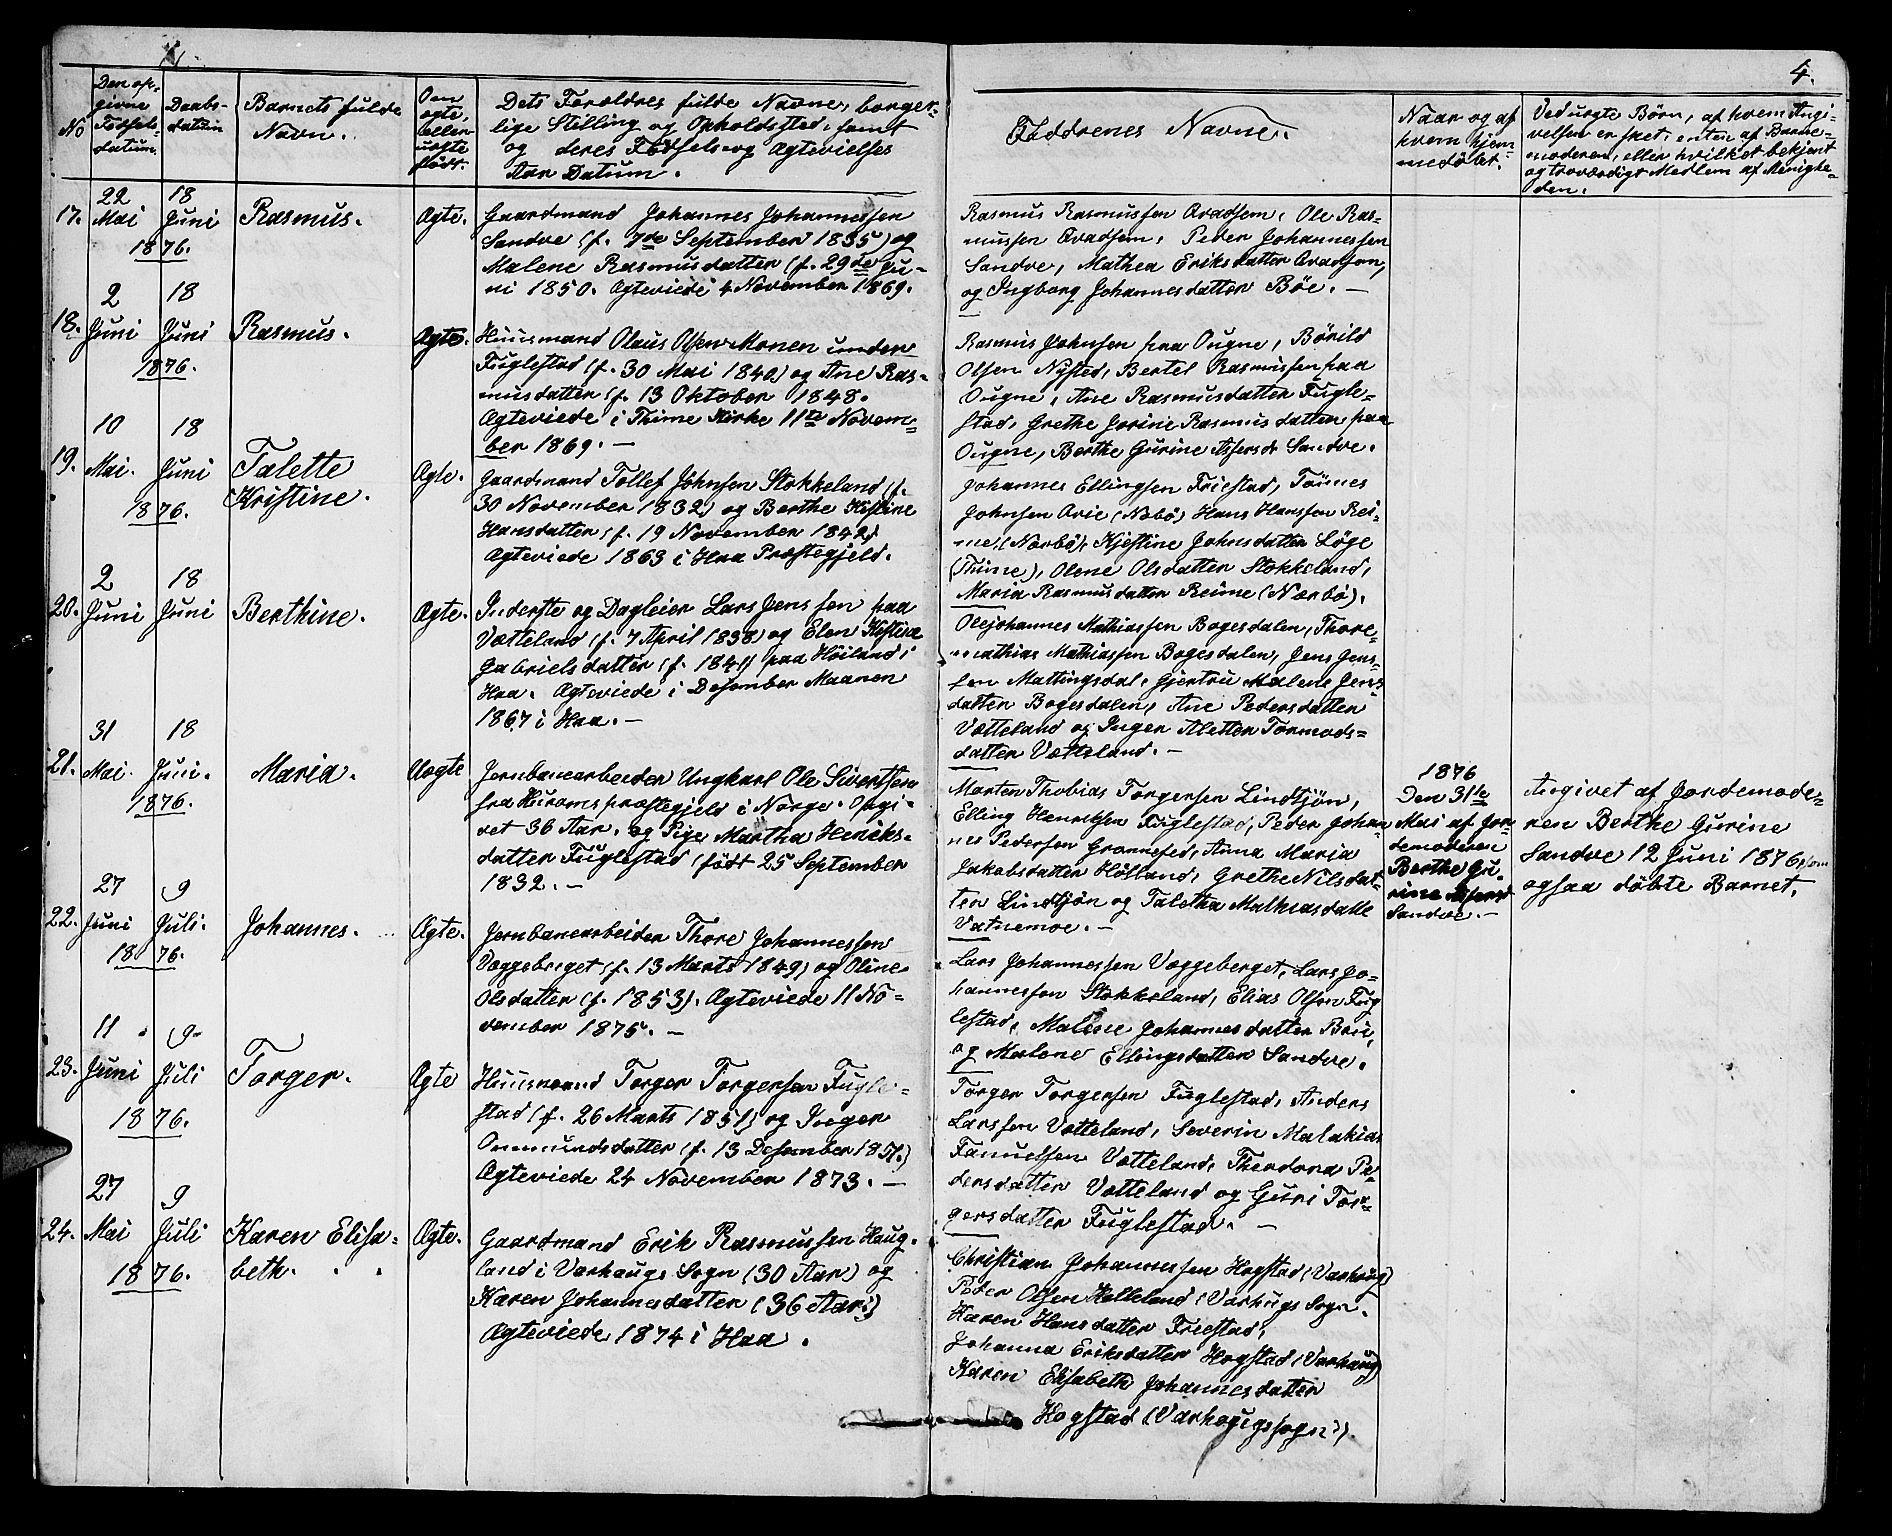 4.
No
Den op-
givne
Fødsels-
datum.
Daabs-
datum
Barnets fulde
Navn.
Om
ægte,
eller
uægte
født.
Dets Forældres fulde Navne, borger-
lige Stilling og Opholdssted, samt
og deres Fødsels og Ægtevielses
Aar Datum.
Faddrenes Navne.
Naar og af
hvem hjem-
medøbt.
Ved uægte Børn, af hvem Angi-
velsen er sket, enten af Barne-
moderen, eller hvilket bekjent
og troværdigt Medlem af Menighe-
den.
17. 22 Mai 18 Juni
1876.
Rasmus.
Ægte.
Gaardmand Johannes Johannessen
Sandve (f. 7de September 1835) og
Malene Rasmusdatter (f. 29de Ju-
ni 1850. Ægteviede 4 November 1869.
Rasmus Rasmussen Ovadsem, Ole Ras-
mussen Ovadsem, Peder Johannessen
Sandve, Mathea Eriksdatter Ovadsem,
og Ingborg Johannesdatter Bøe. —
18. 2 Juni 18 Juni
1876.
Rasmus.
Ægte.
Huusmand Olaus Olsen Monen under
Fuglestad (f. 30 Mai 1840) og Ane Ras-
musdatter (f. 13 Oktober 1848.
Ægteviede i Thime Kirke 11te Novem-
ber 1869. —
Rasmus Johnsen paa Ougne, Børild
Olsen Nysted, Bertel Rasmussen paa
Ougne, Ane Rasmusdatter Fugle-
stad, Grethe Jorine Rasmusdatter, paa
Ougne, Berthe Gurine Assersd. Sandve.
19. 10 Mai. 18 Juni
1876.
Talette
Kristine.
Ægte.
Gaardmand Tollef Johnsen Stokkeland (f.
30 November 1832) og Berthe Kistine
Hansdatter (f. 19 November 1842)
Ægteviede 1863 i Haa Præstegjeld.
Johannes Ellingsen Friestad, Tønnes
Johnsen Ovie (Nobø) Hans Hanssen Rei-
me, (Nærbø), Kjestine Johnsdatter Løge
(Thime), Olene Olsdatter Stokkeland,
Maria Rasmusdatter Reime (Nærbø).
20. 2 Juni 18 Juni
Berthine.
Ægte.
Inderste og Dagleier Lars Jenssen paa
Vætteland (f. 7 April 1838) og Elen Kistine
Gabrielsdatter (f. 1841) paa Høiland i
Haa. Ægteviede i Desember Maanen
1867 i Haa. —
Olejohannes Mathiassen Bogesdalen, Thore-
mathias Mathiassen Bogesdalen, Jens Jens-
sen Mattingsdal, Gjertru Malene Jens
datter Bogesdalen, Ane Pedersdatter
Vætteland og Inger Aletter Tormods-
datter Vætteland. —
21. 31 Mai. 18 Juni.
1876.
Maria.
Uægte
Jernbanearbeider Ungkarl Ole Sivertsen
fra Hurams præstegjeld i Norge. Opgi-
vet 36 Aar. og Pige Martha Henriks-
datter Fuglestad (født 25 September
1832. —
Morten Thobias Torgersen Lindtjøn,
Elling Henriksen Fuglestad, Peder Johan-
nes Pedersen Grønnefed, Anna Maria
Jakobsdatter Høiland, Grethe Nilsdat-
ter Lindtjøn og Taletha Mathiasdatte
Vatnemoe. —
1876
Den 31te
Mai af Jor-
demoderen
Berthe Gu-
rine Assersd
Sandve. —
Angivet af Jordemode-
ren Berthe Gurine
Sandve 12 Juni 1876, som
ogsaa døbte Barnet.
22. 27 Juni 9 Juli.
1876.
Johannes.
Ægte.
Jernbanearbeider Thore Johannessen
Væggeberget (f. 13 Marts 1849) og Oline
Olsdatter (f. 1853). Ægteviede 11 No-
vember 1875. —
Lars Johannessen Væggeberget, Lars Jo-
hannessen Stokkeland, Elias Olsen Fug
lestad, Malene Johannesdatter Bru,
og Malene Ellingsdatter Sandve.
23. 11 Juni 9 Juli
1876.
Torger.
Ægte
Huusmand Torger Torgersen Fugle-
stad (f. 26 Marts 1851) og Inger
Ommundsdatter (f. 13 Desember 1851.)
Ægteviede 24 November 1873. —
Torger Torgersen Fuglestad, Anders
Larssen Vætteland, Severin Malakias
Fanuelsen Vætteland, Theodora Pe-
dersdatter Vætteland og Guri Tor-
gersdatter Fuglestad. —
24. 27 Mai 9 Juli
1876.
Karen Elisa-
beth.
Ægte.
Gaardmand Erik Rasmussen Haug-
land i Varhaugs Sogn (30 Aar) og
Karen Johannesdatter (36 Aar)
Ægteviede 1874 i Haa.
Christian Johannessen Hogstad (Varhaug)
Peder Olsen Hælleland (Varhugs Sogn.
Karen Hansdatter Friestad,
Johanna Eriksdatter Hogstad (Varhaug)
Karen Elisabeth Johannesdatter
Hogstad (Varhougssogn).